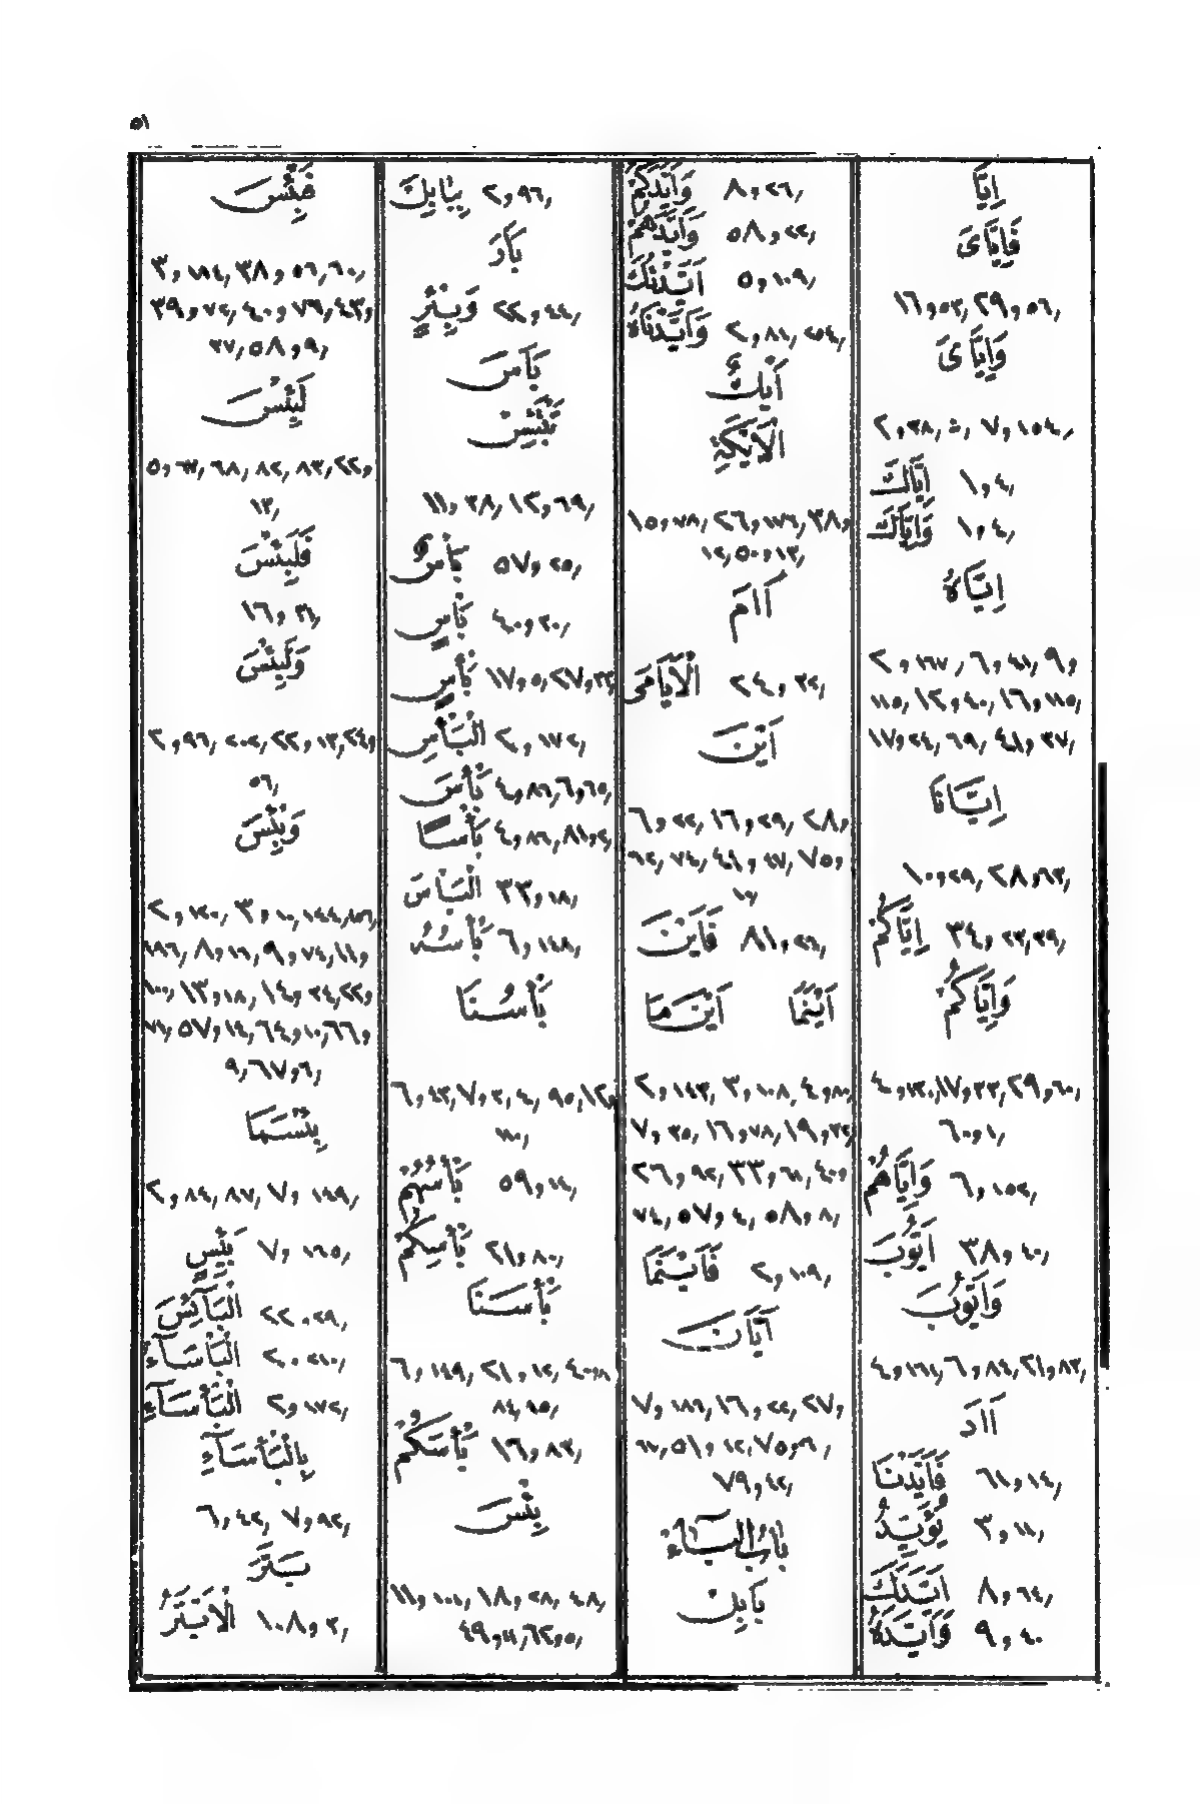 ٥١
اِيَّا
فَاِيَّاىَ
١٦و٥٣, ٢٩و٥٦,
وَاِيَّاىَ
اِيَّاكَ ١و٤,
وَاِيَّاكَ ١و٤,
اِيَّاهُ
٢و١٦٧, ٦و٤١, ٩و
١١٥, ١٢و٤٠, ١٦و١١٥,
١٧و٢٤, ٦٩, ٤١و٣٧,
اِيَّانَا
١٠و٢٩, ٢٨و٦٣,
اِيَّاكُمْ ٣٤و٢٤,٣٩,
وَاِيَّاكُمْ
٤و١٣٠, ١٧و٣٣, ٢٩و٦٠,
٦٠و١,
وَاِيَّاهُمْ ٦و١٥٢,
اَيُّوبَ ٣٨و٤٠,
وَاَيُّوبَ
٤و١٦٢, ٦و٨٤, ٢١و٨٣,
اَادَ
فَاَيَّدْنَا ٦١و١٤,
يُؤَيِّدُ ٣و١١,
اَيَّدَكَ ٨و٦٤,
وَاَيَّدَهُ ٩و٤٠
وَاَيَّدَكُمْ ٨و٢٦,
وَاَيَّدَهُمْ ٥٨و٢٢,
اَيَّدْتُكَ ٥و١٠٩,
وَاَيَّدْنَاهُ ٢و٨٤, ٢٥٤,
اَيْكُ
الْاَيْكَةِ
١٥و٧٨, ٢٦و١٧٦, ٣٨و
١٢, ٥٠و١٣,
اَامَ
الْاَيَامٰى ٢٤و٣٢,
اَيْنَ
٦و٢٢, ١٦و٢٩, ٢٨و
٦٢, ٧٤, ٤١و٤٧, ٧٥و
١٠,
فَاَيْنَ ٨١و٢٦,
اَيْنَمَا اَيْنَ مَا
٢و١٤٣, ٣و١٠٨, ٤و٨٠,
٧و٣٥, ١٦و٧٨, ١٩و٣٢,
٢٦و٩٢, ٣٣و٦١, ٤٠و
٧٤, ٥٧و٤, ٥٨و٨,
فَاَيْنَمَا ٢و١٠٩,
اَيَّانَ
٧و١٨٦, ١٦و٢٢, ٢٧و
٦٧, ٥١و١٢, ٧٥و٦,
٧٩و٤٢,
بَابُ الْبَاءِ
بَابِلْ
بِبَابِلَ ٢و٩٦,
بَأَرَ
وَبِئْرٍ ٢٢و٤٤,
بَأَسَ
تَبْتَئِسْ
١١و٣٨, ١٢و٦٩,
بَأْسٌ ٥٧و٢٥,
بَأْسِ ٤٠و٣٠,
بَأْسٍ ١٧و٥, ٢٧و٣٣,
الْبَأْسِ ٢و١٧٢,
بَأْسَ ٤و٨٦, ٦و٦٥,
بَأْسًا ٤و٨٦, ١٨و٢,
الْبَأْسَ ٣٣و١٨,
بَأْسُهُ ٦و١٤٨,
بَأْسُنَا
٦و٤٣, ٧و٣, ٤, ٩٥, ١٢و
١١٠,
بَأْسُهُمْ ٥٩و١٤,
بَأْسِكُمْ ٢١و٨٠,
بَأْسَنَا
٦و١٤٩, ٢١و١٢, ٤٠و
٨٤, ٨٥,
بَأْسَكُمْ ١٦و٨٣,
بِئْسَ
١١و١٠١, ١٨و٢٨, ٤٨,
٤٩و١١, ٦٢و٥,
فَبِئْسَ
٣و١٨٤, ٣٨و٥٦, ٦٠,
٣٩و٧٢, ٤٠و٧٦, ٤٣و
٣٧, ٥٨و٩,
لَبِئْسَ
٥و٦٧, ٦٨, ٨٢, ٨٣, ٢٢و
١٣,
فَلَبِئْسَ
١٦و٣١,
وَلَبِئْسَ
٢و٩٦, ٢٠٢, ٢٢و١٣, ٢٤و
٥٦,
وَبِئْسَ
٢و١٢٠, ٣و١٠, ١٤٤, ١٥٦,
١٨٦, ٨و١٦, ٩و٧٤, ١١و
١٠٠, ١٣و١٨, ١٤و٣٤, ٢٢و
٧١, ٥٧و١٤, ٦٤و١٠, ٦٦و
٩, ٦٧و٦,
بِئْسَمَا
٢و٨٤, ٨٧, ٧و١٤٩,
بَئِيسٍ ٧و١٦٥,
الْبَآئِسَ ٢٢و٢٩,
الْبَأْسَآءُ ٢و٢١٠,
الْبَأْسَآءِ ٢و١٧٢,
بِالْبَأْسَآءِ
٦و٤٢, ٧و٩٢,
بَتَرَ
الْاَبْتَرُ ١٠٨و٣,